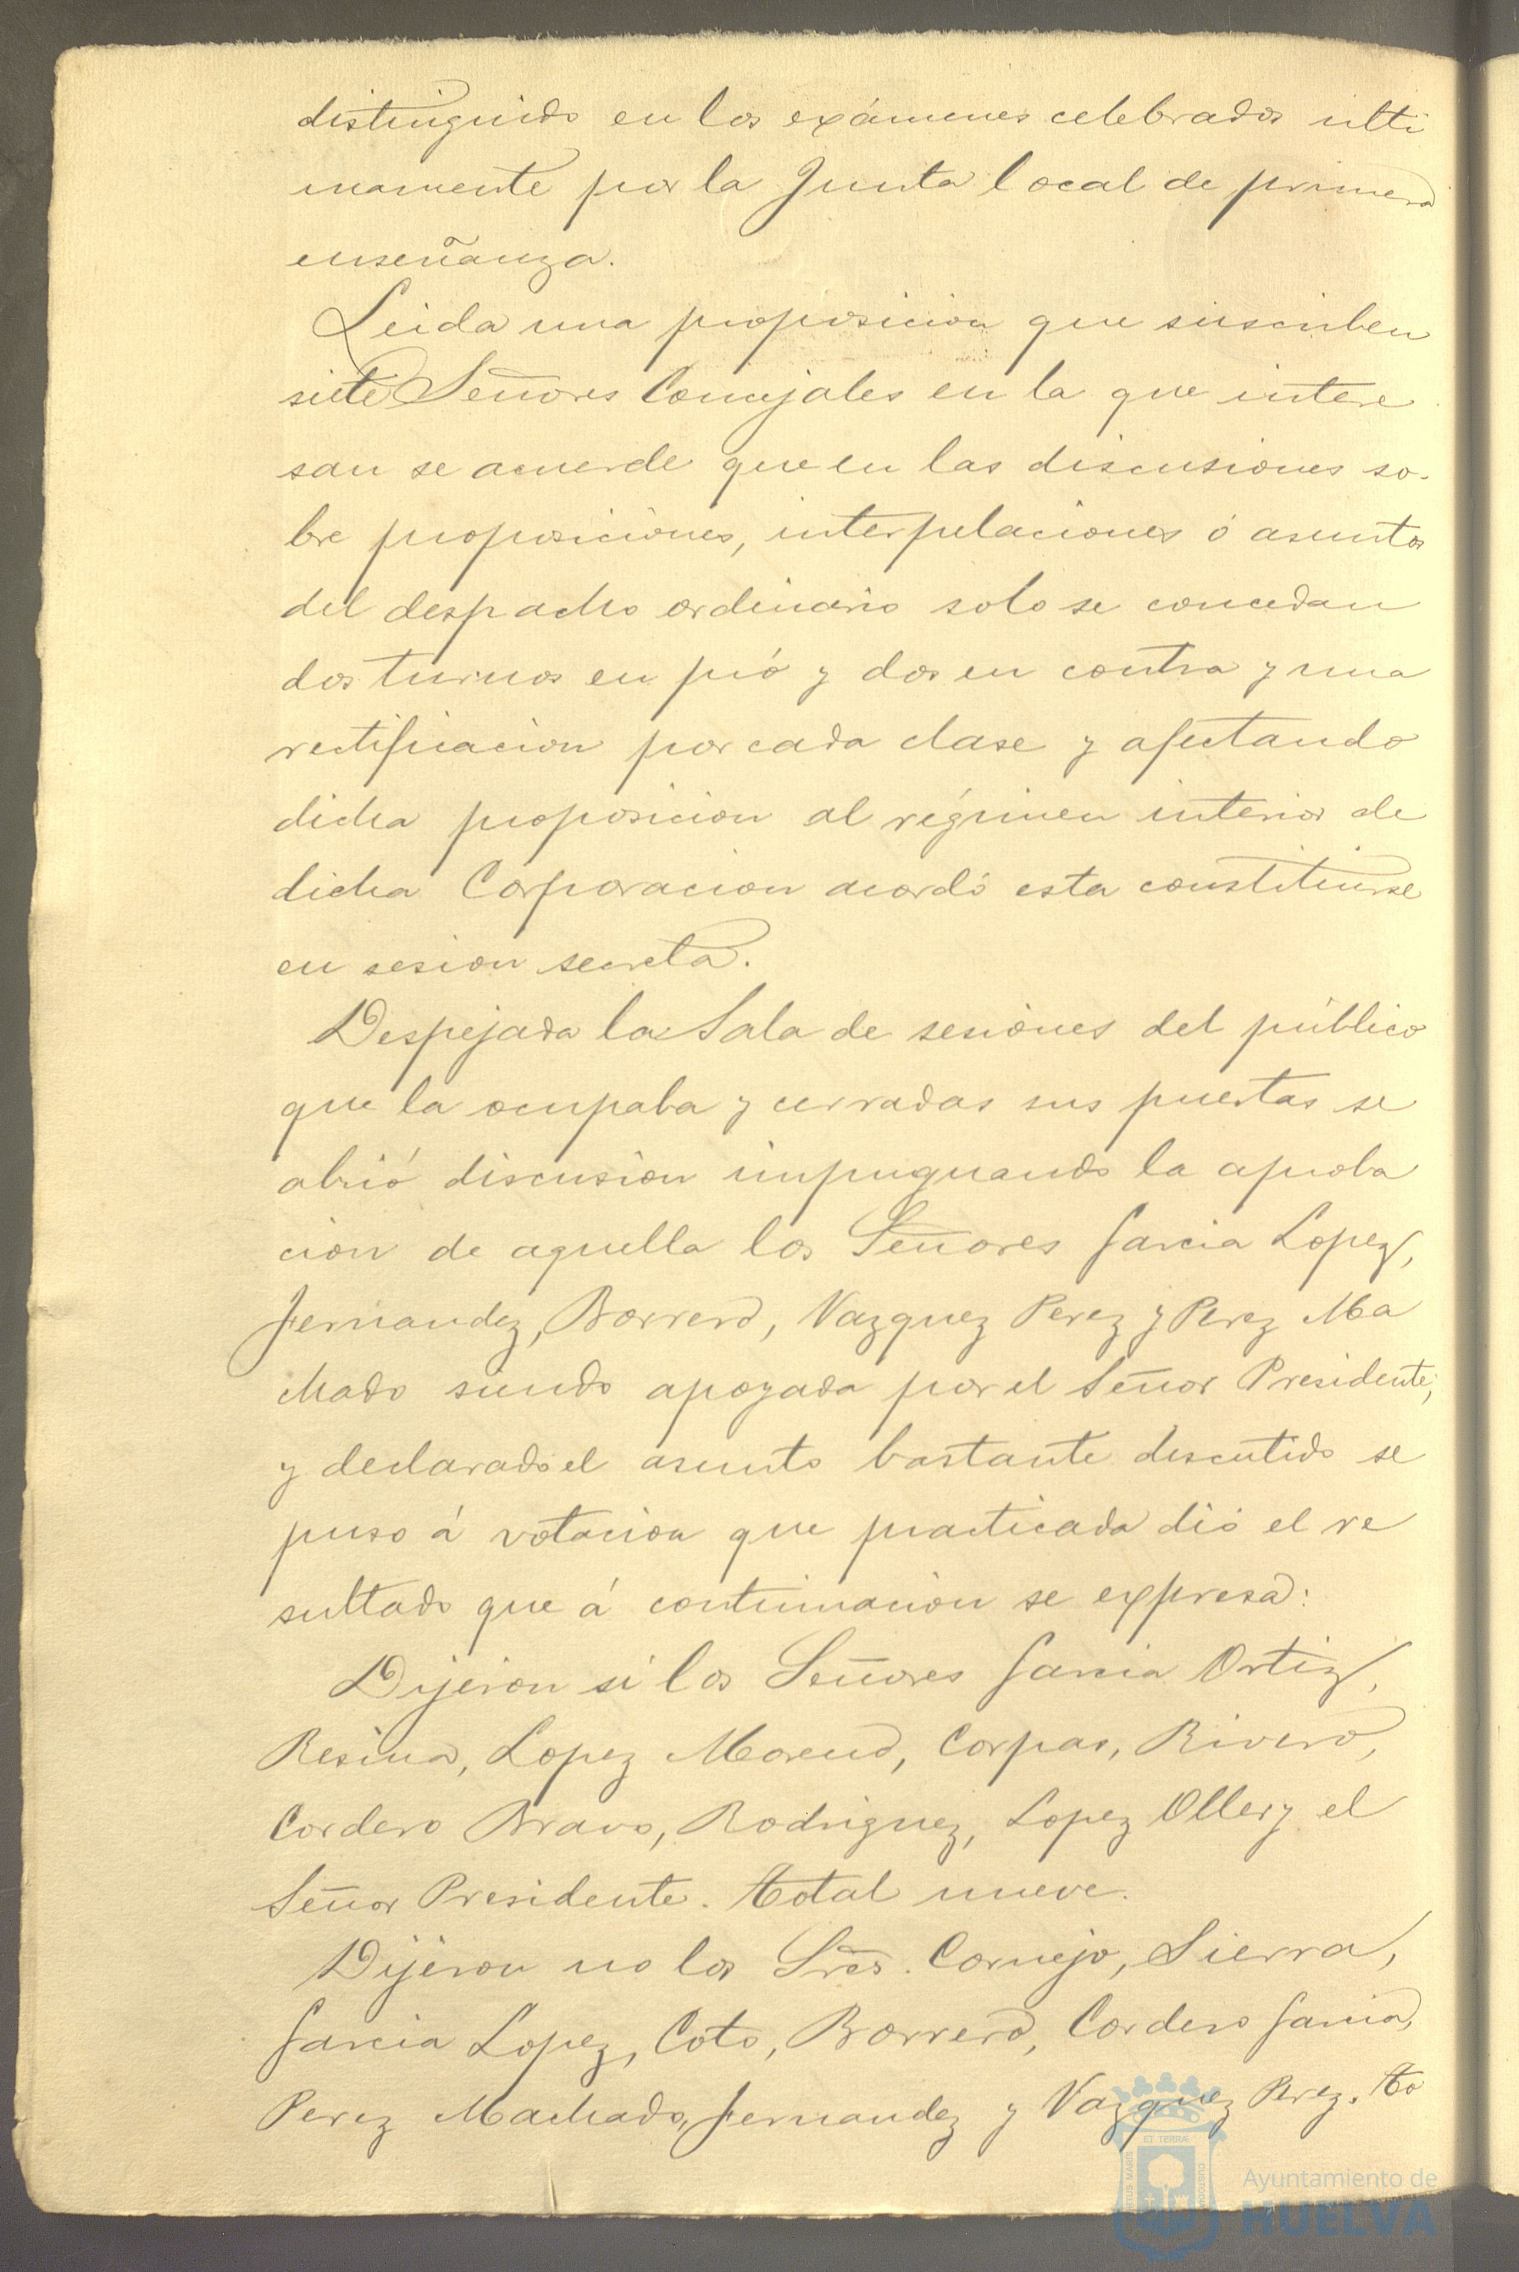 distinguido en los exámenes celebrados ulti
mamente por la Junta local de primera
enseñanza.
Leida una proposicion que suscriben
siete Señores Concejales en la que intere
san se acuerde que en las discusiones so-
bre proposiciones, interpelaciones ó asuntos
del despacho ordinario solo se concedan
dos turnos en pró y dos en contra y una
rectificacion por cada clase y afectando
dicha proposicion al régimen interior de
dicha Corporacion acordó esta constituirse
en sesion secreta.
Despejada la Sala de sesiones del público
que la ocupaba y cerradas sus puertas se
abrió discusion impugnando la aproba
cion de aquella los Señores Garcia Lopez,
Fernandez, Borrero, Vazquez Perez y Perez Ma
chado siendo apoyada por el Señor Presidente,
y declarado el asunto bastante discutido se
puso á votacion que practicada dió el re
sultado que á continuacion se expresa:
Dijeron si los Señores Garcia Ortiz,
Resina, Lopez Moreno, Corpas, Rivero,
Cordero Bravo, Rodriguez, Lopez Oller y el
Señor Presidente. Total nueve.
Dijeron no los Sres. Cornejo, Sierra,
Garcia Lopez, Coto, Borrero, Cordero Garcia,
Perez Machado, Fernandez y Vazquez Perez. To
ET TERRÆ
PORTUS MARIS
CUSTODIA
Ayuntamiento de
HUELVA